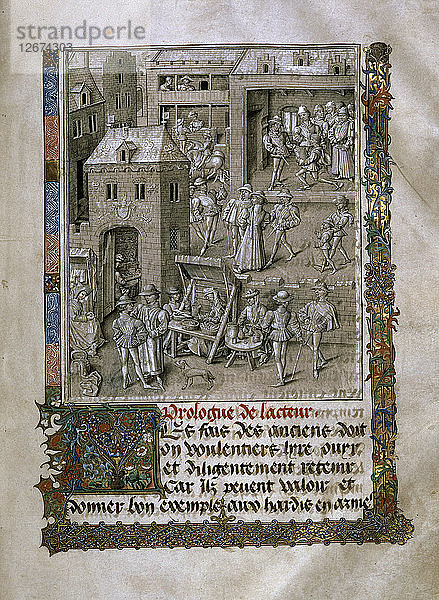 stock.adobe.com
12674303
Prologue de lacteur
Les fais des anciens doit
on voulentiers lyre ouyr
et diligentement retenir
Car ilz pevent valoir et
donner bon exemple aux hardis en arme